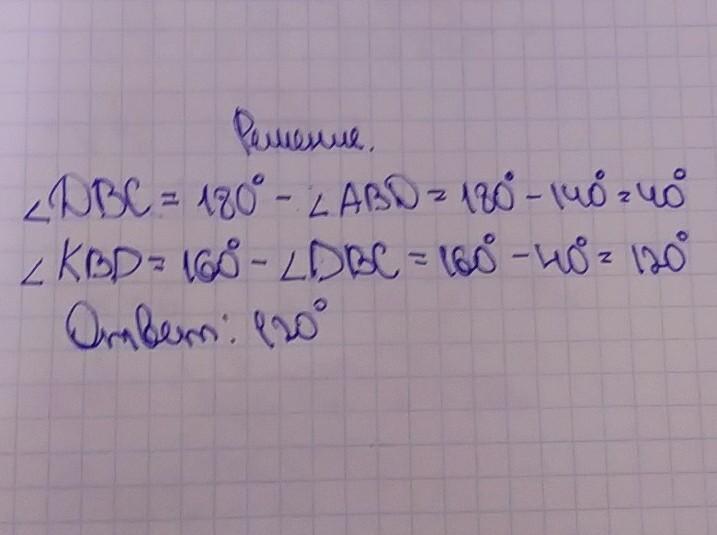 Решение.
∠DBC = 180° - ∠ABD = 180° - 140° = 40°
∠KBD = 160° - ∠DBC = 160° - 40° = 120°
Ответ: 120°